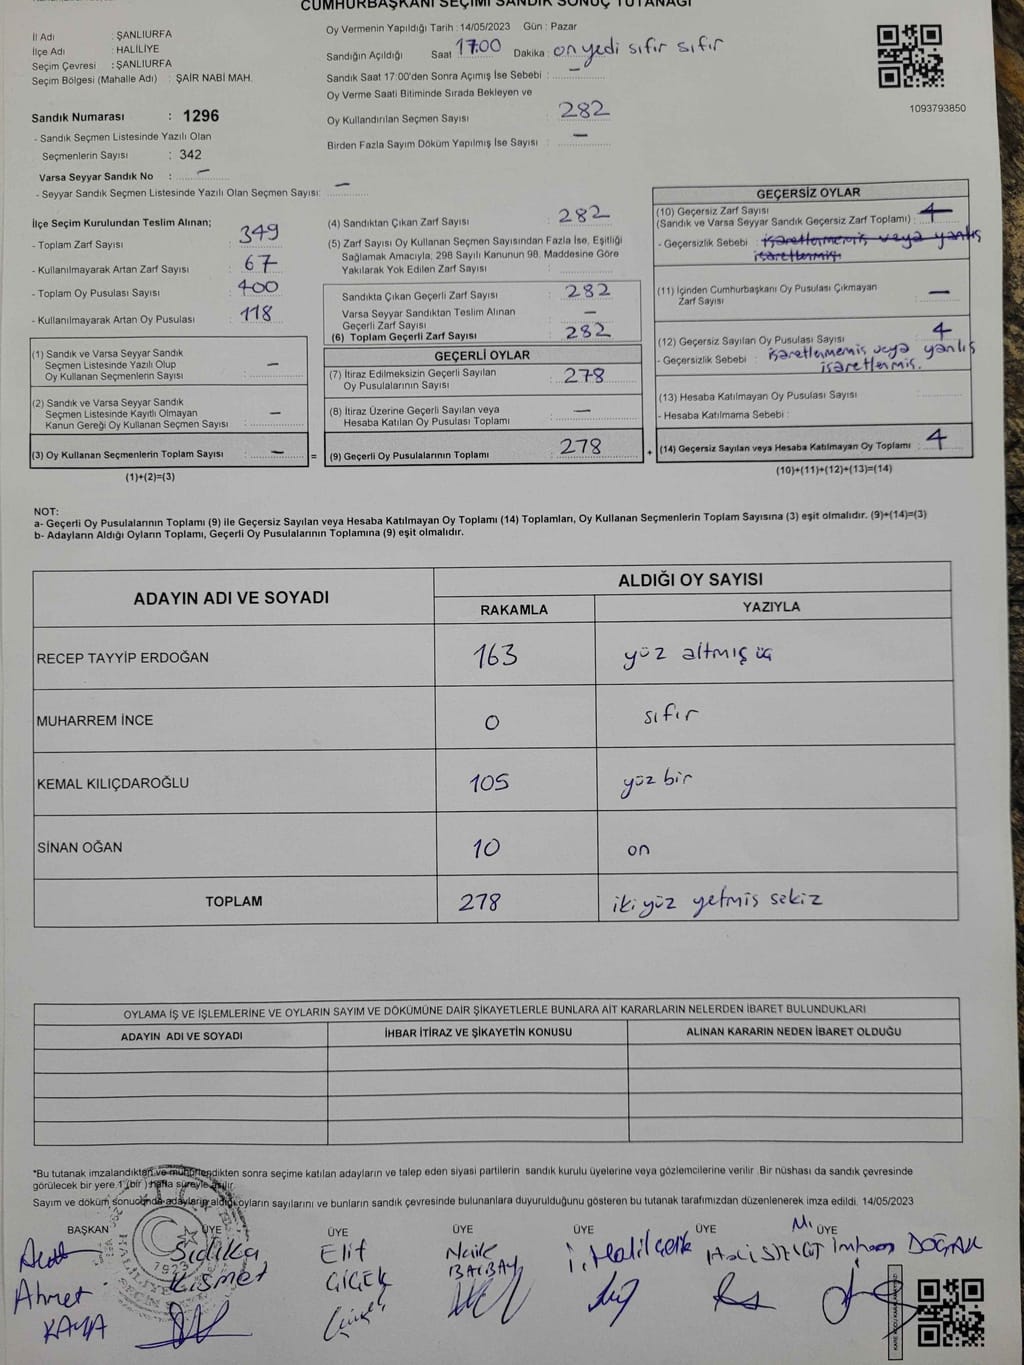 CUMHURBAŞKANI SEÇİMİ SANDIK SONUÇ TUTANAĞI
İl Adı : ŞANLIURFA
İlçe Adı : HALİLİYE
Seçim Çevresi : ŞANLIURFA
Seçim Bölgesi (Mahalle Adı) : ŞAİR NABİ MAH.
Oy Vermenin Yapıldığı Tarih : 14/05/2023 Gün : Pazar
Sandığın Açıldığı Saat 17:00 Dakika : on yedi sıfır sıfır
Sandık Saat 17:00'den Sonra Açımış İse Sebebi : –
Oy Verme Saati Bitiminde Sırada Bekleyen ve
Oy Kullandırılan Seçmen Sayısı : 282
Birden Fazla Sayım Döküm Yapılmış İse Sayısı : –
1093793850
Sandık Numarası : 1296
- Sandık Seçmen Listesinde Yazılı Olan
Seçmenlerin Sayısı : 342
Varsa Seyyar Sandık No : –
- Seyyar Sandık Seçmen Listesinde Yazılı Olan Seçmen Sayısı: –
İlçe Seçim Kurulundan Teslim Alınan;
- Toplam Zarf Sayısı : 349
- Kullanılmayarak Artan Zarf Sayısı : 67
- Toplam Oy Pusulası Sayısı : 400
- Kullanılmayarak Artan Oy Pusulası : 118
(1) Sandık ve Varsa Seyyar Sandık
Seçmen Listesinde Yazılı Olup
Oy Kullanan Seçmenlerin Sayısı : –
(2) Sandık ve Varsa Seyyar Sandık
Seçmen Listesinde Kayıtlı Olmayan
Kanun Gereği Oy Kullanan Seçmen Sayısı : –
(3) Oy Kullanan Seçmenlerin Toplam Sayısı : –
(1)+(2)=(3)
(4) Sandıktan Çıkan Zarf Sayısı : 282
(5) Zarf Sayısı Oy Kullanan Seçmen Sayısından Fazla İse, Eşitliği
Sağlamak Amacıyla; 298 Sayılı Kanunun 98. Maddesine Göre
Yakılarak Yok Edilen Zarf Sayısı :
Sandıkta Çıkan Geçerli Zarf Sayısı : 282
Varsa Seyyar Sandıktan Teslim Alınan
Geçerli Zarf Sayısı : –
(6) Toplam Geçerli Zarf Sayısı : 282
GEÇERLİ OYLAR
(7) İtiraz Edilmeksizin Geçerli Sayılan
Oy Pusulalarının Sayısı : 278
(8) İtiraz Üzerine Geçerli Sayılan veya
Hesaba Katılan Oy Pusulası Toplamı : –
= (9) Geçerli Oy Pusulalarının Toplamı : 278
GEÇERSİZ OYLAR
(10) Geçersiz Zarf Sayısı
(Sandık ve Varsa Seyyar Sandık Geçersiz Zarf Toplamı) : 4
- Geçersizlik Sebebi : işaretlenmemiş veya yanlış
işaretlenmiş.
(11) İçinden Cumhurbaşkanı Oy Pusulası Çıkmayan
Zarf Sayısı : –
(12) Geçersiz Sayılan Oy Pusulası Sayısı : 4
- Geçersizlik Sebebi : işaretlenmemiş veya yanlış
işaretlenmiş.
(13) Hesaba Katılmayan Oy Pusulası Sayısı :
- Hesaba Katılmama Sebebi :
+ (14) Geçersiz Sayılan veya Hesaba Katılmayan Oy Toplamı : 4
(10)+(11)+(12)+(13)=(14)
NOT:
a- Geçerli Oy Pusulalarının Toplamı (9) ile Geçersiz Sayılan veya Hesaba Katılmayan Oy Toplamı (14) Toplamları, Oy Kullanan Seçmenlerin Toplam Sayısına (3) eşit olmalıdır. (9)+(14)=(3)
b- Adayların Aldığı Oyların Toplamı, Geçerli Oy Pusulalarının Toplamına (9) eşit olmalıdır.
ADAYIN ADI VE SOYADI ALDIĞI OY SAYISI
RAKAMLA YAZIYLA
RECEP TAYYİP ERDOĞAN 163 yüz altmış üç
MUHARREM İNCE 0 sıfır
KEMAL KILIÇDAROĞLU 105 yüz bir
SİNAN OĞAN 10 on
TOPLAM 278 iki yüz yetmiş sekiz
OYLAMA İŞ VE İŞLEMLERİNE VE OYLARIN SAYIM VE DÖKÜMÜNE DAİR ŞİKAYETLERLE BUNLARA AİT KARARLARIN NELERDEN İBARET BULUNDUKLARI
ADAYIN ADI VE SOYADI İHBAR İTİRAZ VE ŞİKAYETİN KONUSU ALINAN KARARIN NEDEN İBARET OLDUĞU
*Bu tutanak imzalandıktan ve mühürlendikten sonra seçime katılan adayların ve talep eden siyasi partilerin sandık kurulu üyelerine veya gözlemcilerine verilir .Bir nüshası da sandık çevresinde
görülecek bir yere 1 (bir) hafta süreyle asılır.
Sayım ve döküm sonucunda adayların aldığı oyların sayılarını ve bunların sandık çevresinde bulunanlara duyurulduğunu gösteren bu tutanak tarafımızdan düzenlenerek imza edildi. 14/05/2023
BAŞKAN ÜYE ÜYE ÜYE ÜYE ÜYE ÜYE
Ahmet KAYA
Sıdıka Kısmet
Elif ÇİÇEK
Naile BALBAY
İ. Halil Çelik
Halis YİĞİT
M. İmran DOĞAN
1923